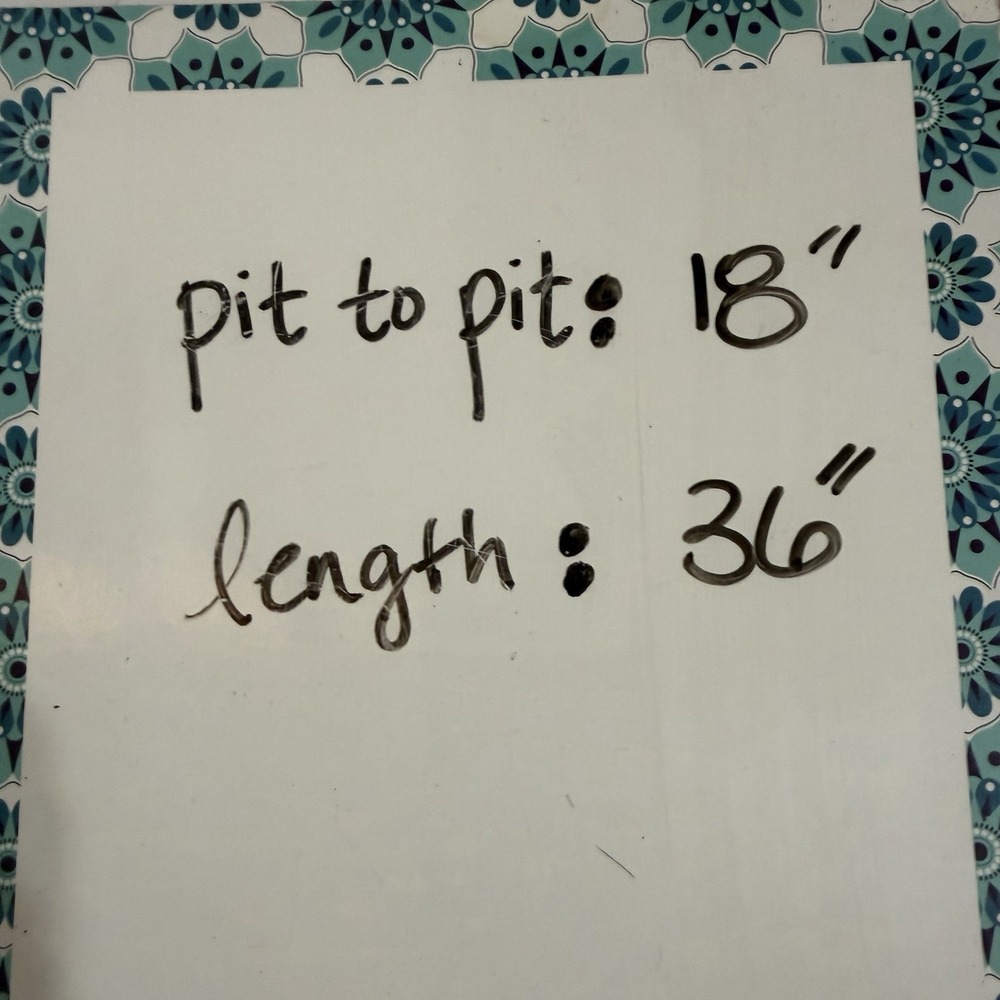 pit to pit: 18"
length: 36"